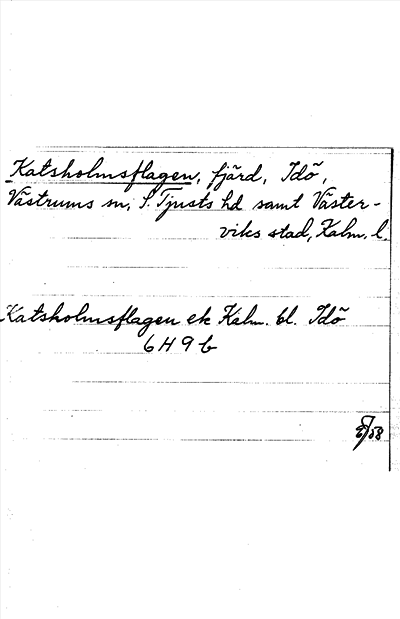 Katsholmsflagen, fjärd, Idö,
Västrums sn, S. Tjusts hd samt Väster-
viks stad, Kalm. l.
Katsholmsflagen ek Kalm. bl. Idö
6 H 9 b